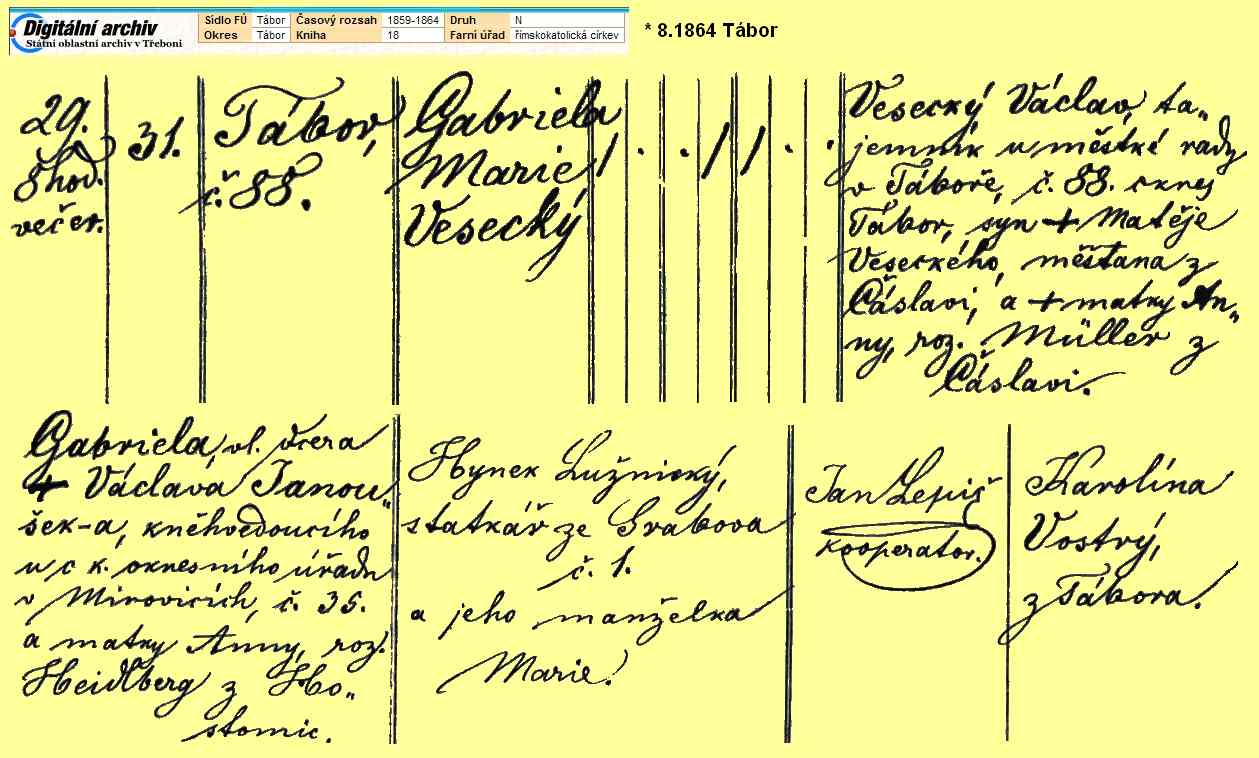 Digitální archiv
Státní oblastní archiv v Třeboni
Sídlo FÚ Tábor Časový rozsah 1859-1864 Druh N
Okres Tábor Kniha 18 Farní úřad římskokatolická církev
* 8.1864 Tábor
29.
8 hod.
večer.
31.
Tábor,
č. 88.
Gabriela
Marie
Vesecký
Vesecký Václav, ta„
jemník u městké rady
v Táboře, č. 88. okres
Tábor, syn + Matěje
Veseckého, měšťana z
Čáslavi, a + matky An„
ny, roz. Müller z
Čáslavi.
Gabriela, vl. dcera
+ Václava Janou„
šek-a, kněhvedoucího
u c k. okresního úřadu
v Mirovicích, č. 35.
a matky Anny, roz.
Heidlberg z Ho„
stomic.
Hynek Lužnický,
statkář ze Grabova
č. 1.
a jeho manželka
Marie.
Jan Lepiš
kooperator.
Karolína
Vostrý,
z Tábora.